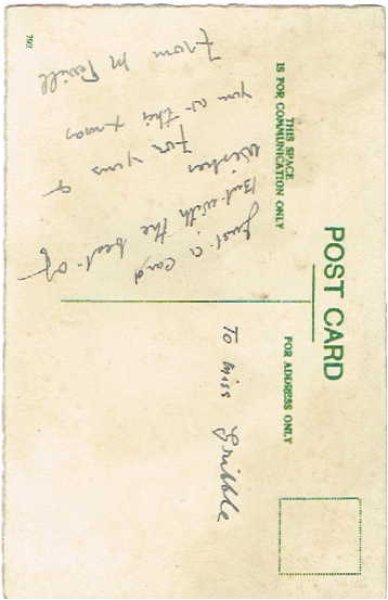 POST CARD
THIS SPACE
IS FOR COMMUNICATION ONLY
FOR ADDRESS ONLY
Just a Card
But with the best of
Wishes
For &
you at this Xmas
From M
To Miss Gribble
792